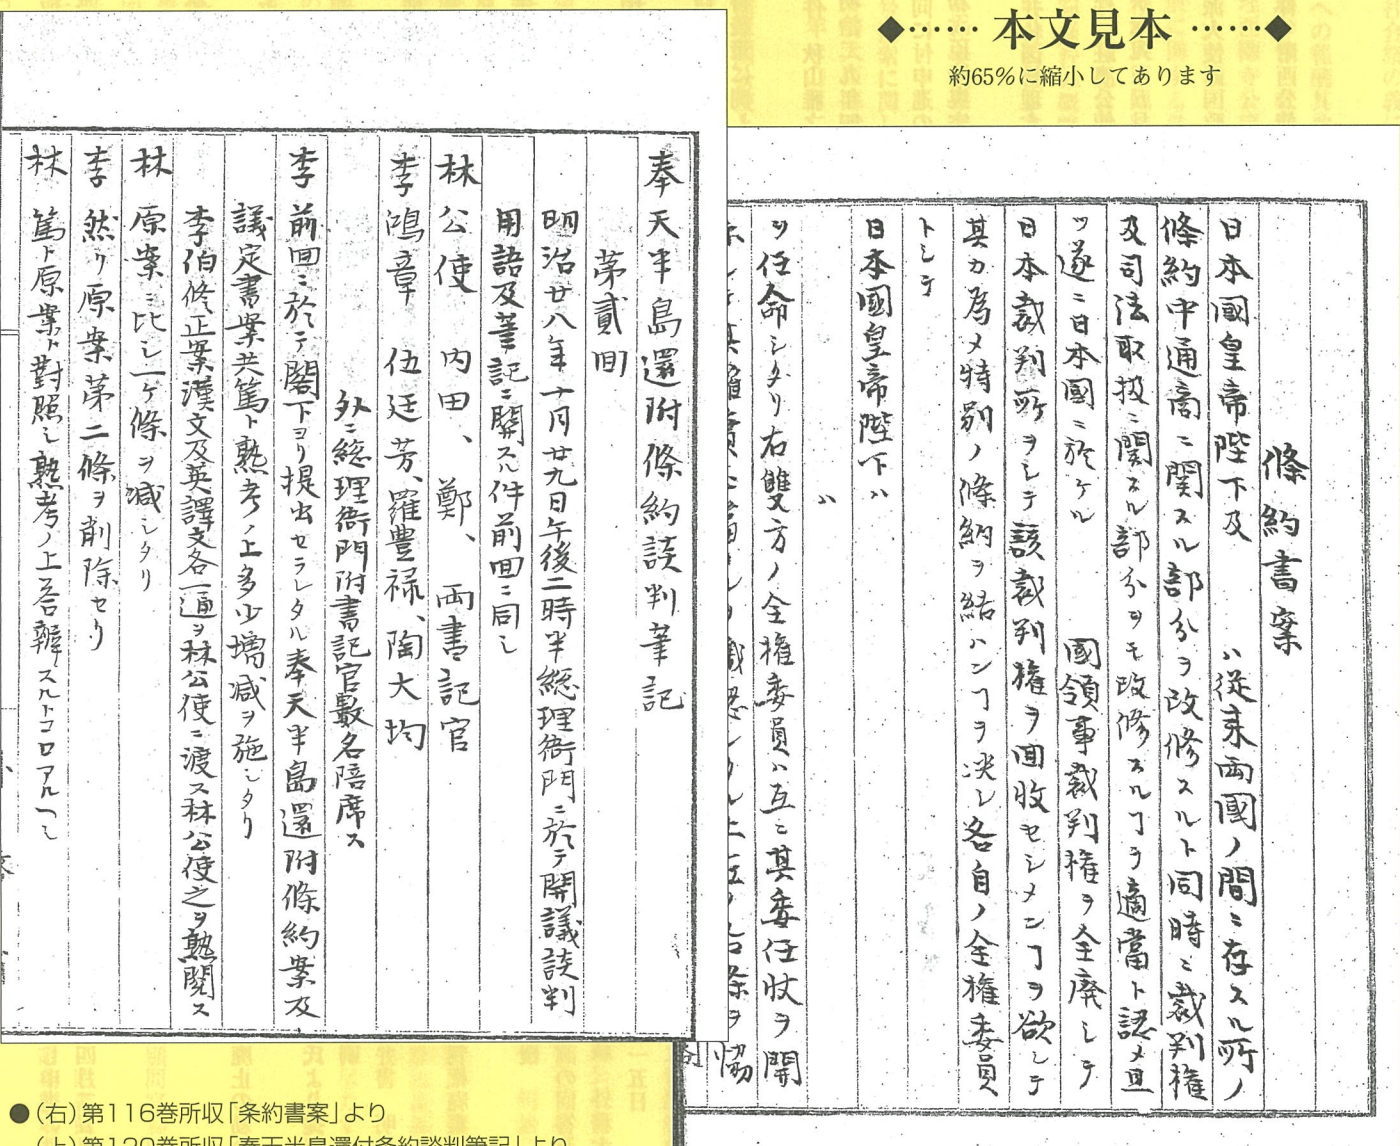 ◆…… 本文見本 ……◆
約65％に縮小してあります
條約書案
日本國皇帝陛下及　　ハ從来両國ノ間ニ存スル所ノ
條約中通商ニ関スル部分ヲ改修スルト同時ニ裁判権
及司法取扱ニ関スル部分ヲモ改修スルヿヲ適當ト認メ且
ツ遂ニ日本國ニ於ケル　　國領事裁判権ヲ全廃シテ
日本裁判所ヲシテ該裁判権ヲ回收セシメンヿヲ欲シテ
其カ為メ特別ノ條約ヲ結ハンヿヲ決シ各自ノ全権委員
トシテ
日本國皇帝陛下ハ
ハ
ヲ任命シタリ右雙方ノ全権委員ハ互ニ其委任状ヲ開
奉天半島還附條約談判筆記
苐貳回
明治廿八年十月廿九日午後二時半総理衙門ニ於テ開議談判
用語及筆記ニ関スル件前回ニ同シ
林公使　内田、鄭、両書記官
李鴻章　伍廷芳、羅豊禄、陶大均
外ニ総理衙門附書記官數名陪席ス
李 前回ニ於テ閣下ヨリ提出セラレタル奉天半島還附條約案及
議定書案共篤ト熟考ノ上多少増減ヲ施シタリ
李伯修正案漢文及英譯文各一通ヲ林公使ニ渡ス林公使之ヲ熟閲ス
林 原案ニ比シ一ケ條ヲ減シタリ
李 然リ原案第二條ヲ削除セリ
林 篤ト原案ト對照シ熟考ノ上答辯スルトコロアルヘシ
●（右）第116巻所収「条約書案」より
（上）第120巻所収「奉天半島還付条約談判筆記」より